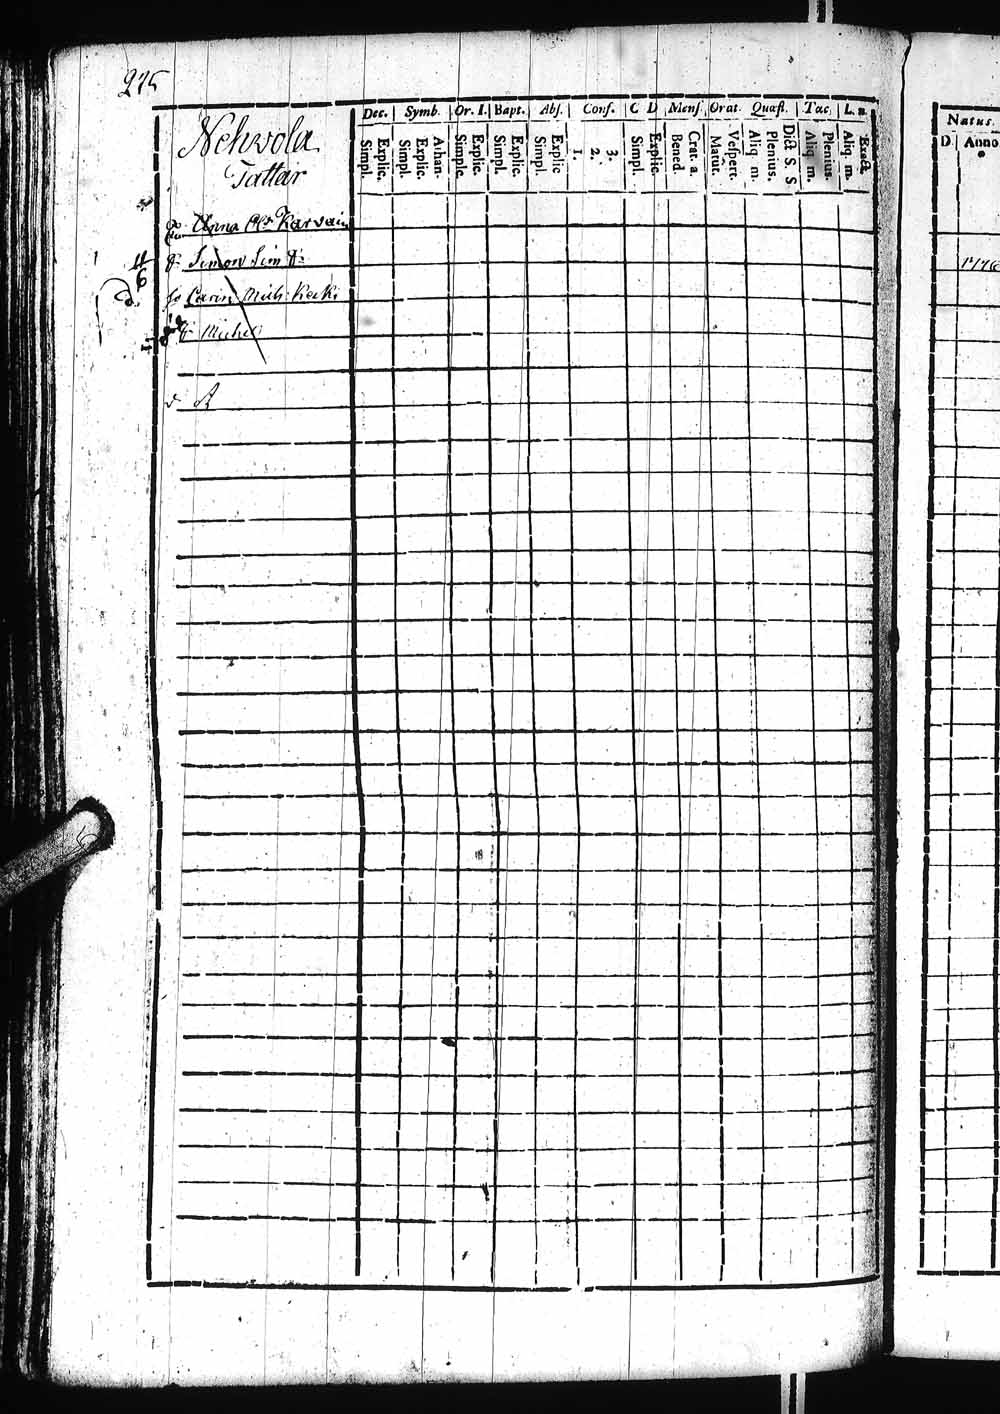 275
Dec. Symb. Or. D. Bapt. Abs. Conf. C D Mens. Orat. Quæst. Tac. L. n.
Simpl. Explic. Simpl. Explic. Athan. Simpl. Explic. Simpl. Explic. Simpl. Explic 1. 2. 3. Simpl. Explic. Bened. Grat. a. Matut. Vespert. Aliq. m. Plenius. Dict. S. S Aliq. m. Plenius. Aliq. m. Exact
Nehvola
Tattar
Anna Karvain
Simon Sim
Carin Mich: Recki
Michel
Natus.
D. Anno
1776